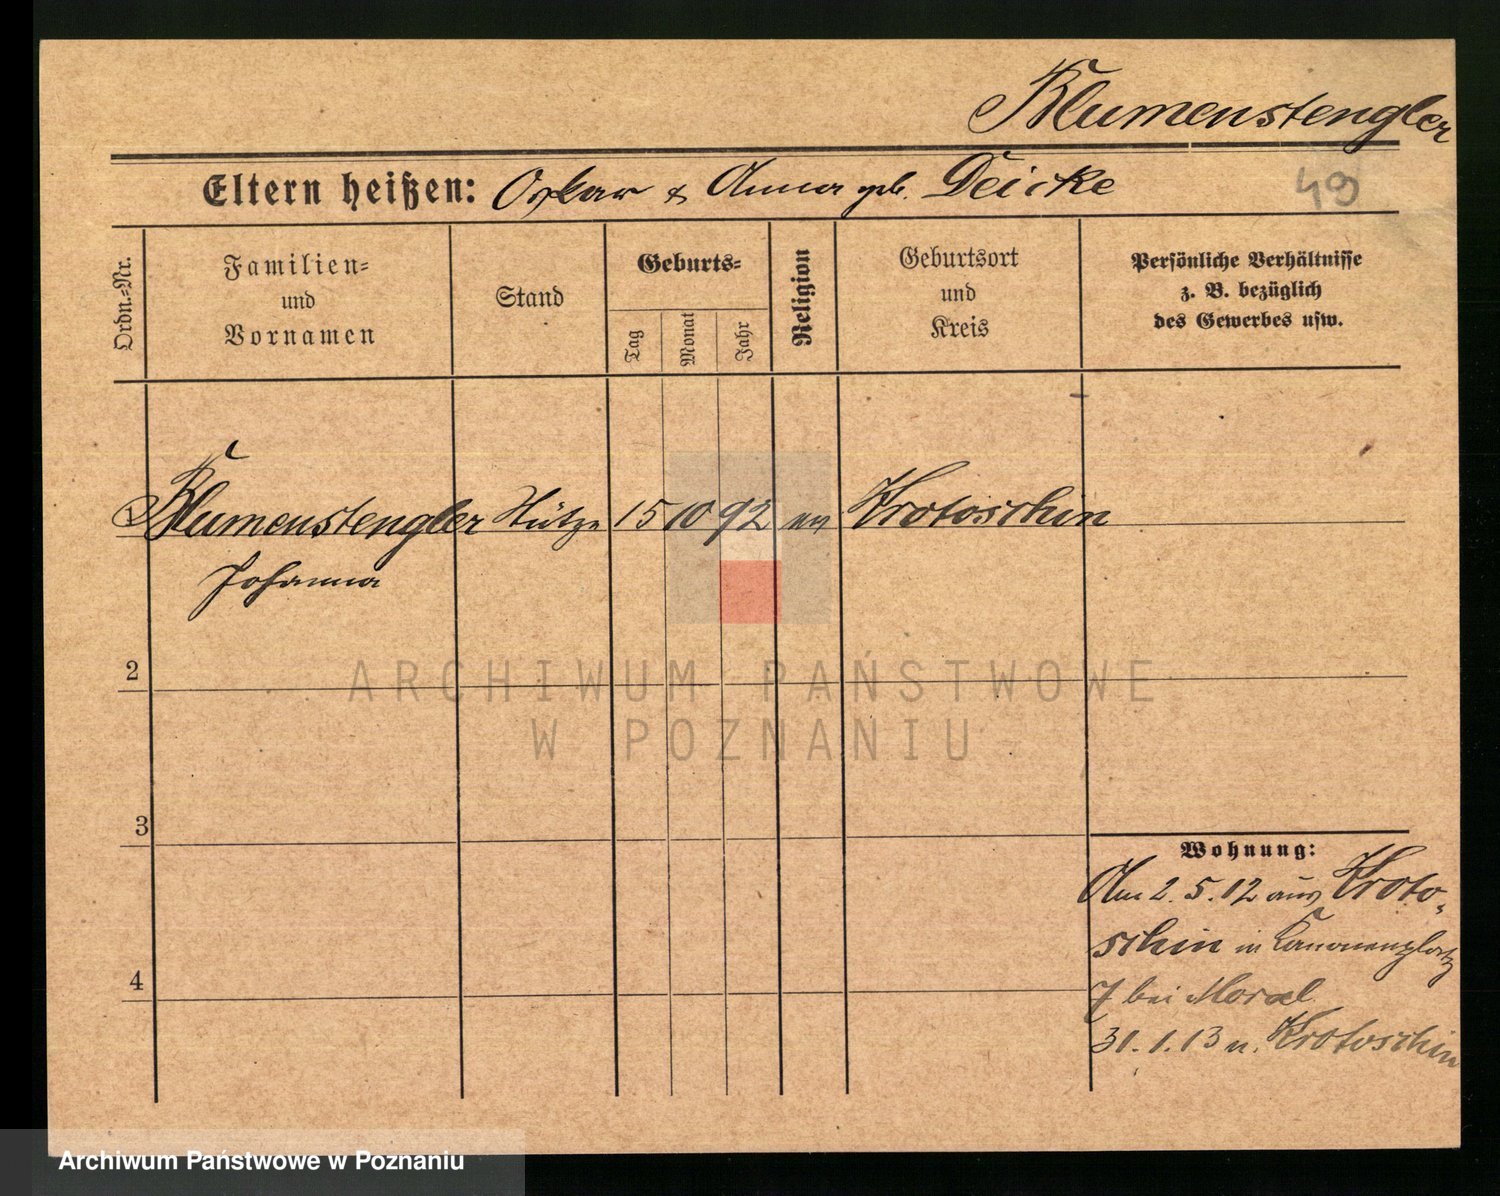 Blumenstengler
Eltern heißen: Oskar & Anna geb. Deicke
49
Ordn.-Nr.
Familien-
und
Vornamen
Stand
Geburts-
Tag
Monat
Jahr
Religion
Geburtsort
und
Kreis
Persönliche Verhältnisse
z. B. bezüglich
des Gewerbes usw.
1 Blumenstengler Stütze 15 10 92 ev Krotoschin
Johanna
2
ARCHIWUM PAŃSTWOWE
W POZNANIU
3
Wohnung:
Am 2. 5. 12 aus Kroto-
schin in Kanonenplatz
4
7 bei Moral
31. 1. 13 n. Krotoschin
Archiwum Państwowe w Poznaniu